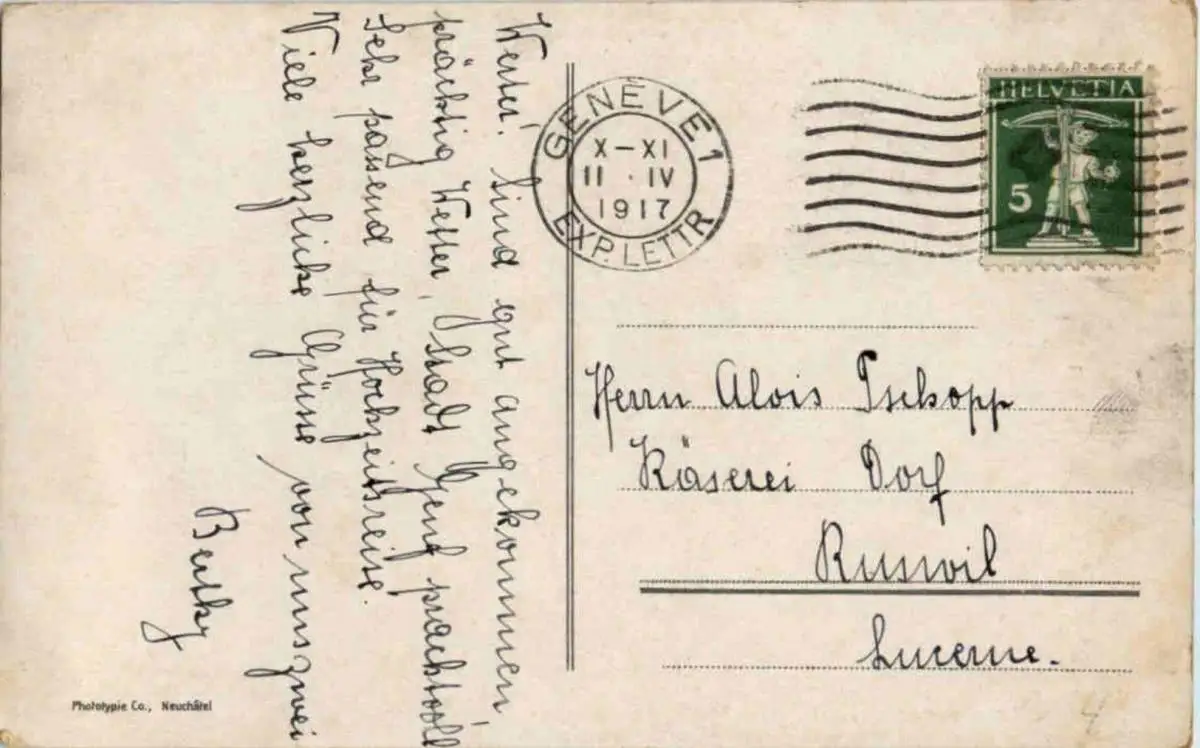 Werter! Sind gut angekommen
prächtig Wetter, Stadt Genf prachtvoll
Sehr passend für Hochzeitsreise.
Viele herzliche Grüsse von uns zwei
GENÈVE 1
X–XI
11 · IV
1917
EXP. LETTR
HELVETIA
5
Herrn Alois Tschopp
Käserei Dorf
Ruswil
Lucerne.
Phototypie Co., Neuchâtel